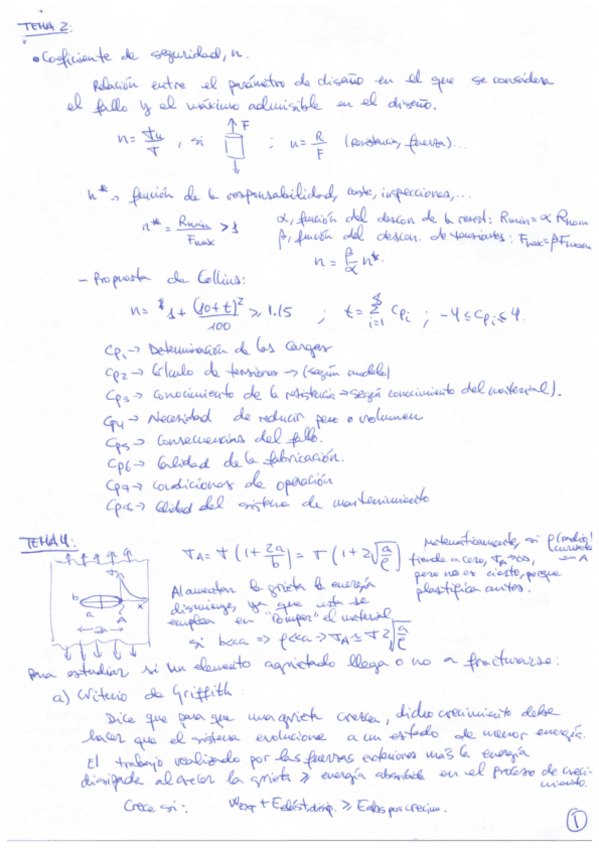 TEMA 2:
• Coeficiente de seguridad, n.
Relación entre el parámetro de diseño en el que se considera
el fallo y el máximo admisible en el diseño.
n = σu/σ , si ↑F ; n = R/F (resistencia, fuerza)...
n* → función de la responsabilidad, coste, inspecciones,...
n* = Rmin/Fmax > 1
α, función del descon. de la resist: Rmin = α Rnom
β, función del descon. de tensiones: Fmax = β Fnom
n = β/α n*
- Propuesta de Collins:
n = 1 + (10+t)²/100 ≥ 1.15 ; t = Σ i=1 8 Cpi ; -4 ≤ Cpi ≤ 4
Cp1 → Determinación de las cargas
Cp2 → Cálculo de tensiones → (según modelo)
Cp3 → Conocimiento de la resistencia → según conocimiento del material).
Cp4 → Necesidad de reducir peso o volumen
Cp5 → Consecuencias del fallo.
Cp6 → Calidad de la fabricación.
Cp7 → Condiciones de operación
Cp8 → Calidad del sistema de mantenimiento
TEMA 4:
σA = σ (1 + 2a/b) = σ (1 + 2√(a/ρ))
Matemáticamente, si ρ (radio curvatura en A)
tiende a cero, σA → ∞,
pero no es cierto, porque
plastifica antes.
b a A x 2a
Al aumentar la grieta la energía
disminuye, ya que esta se
emplea en "romper" el material
si b<<a => ρ<<a → σA ≃ σ 2√(a/ρ)
Para estudiar si un elemento agrietado llega o no a fracturarse:
a) Criterio de Griffith
Dice que para que una grieta crezca, dicho crecimiento debe
hacer que el sistema evolucione a un estado de menor energía.
El trabajo realizado por las fuerzas exteriores más la energía
disipada al crecer la grieta ≥ energía absorbida en el proceso de crecimiento.
Crece si: Wext + Eelást.disip. ≥ Eabs por crecim.
1